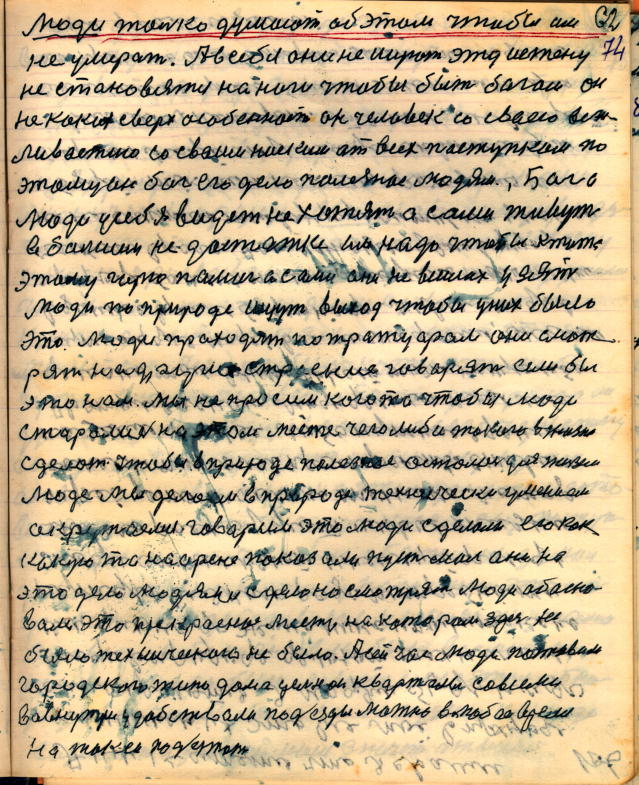 Люди только думают об этом чтобы им 62
не умират. А всебя они не ищют эту истену 74
не становятся на ноги чтобы быт богам он
не каких сверх особенностй он человек со своею веж
ливастию со своим ниским ат всех паступкам по
этому он бог его дело полезное людям., Бога
Люди у себя видет не хотят а сами живут
в большим не достатке им надо чтобы
этому горю а сами они не
Люди по природе ищут выход чтобы у них было
это. Люди праходят по тратуарам они смот
рят на другие строение говарят если бы
это нам. Мы не просим кого то чтобы люди
старалис на этом месте чего либо такого в жизни
сделат чтобы в природе полезное осталос для жизни
Люде мы делаем в природе технически умением
говарим это люди сделали его как
какую то на арене показали пуст мол они на
это дело людями сделано смотрят Люди абасно
вали это прекрасное месту на котором здес не
было технического не было. А сейчас люди поставили
городского типа дома целои квартали совсеми
вовнутри удобствами подезды можно в любое время
на такси подехат